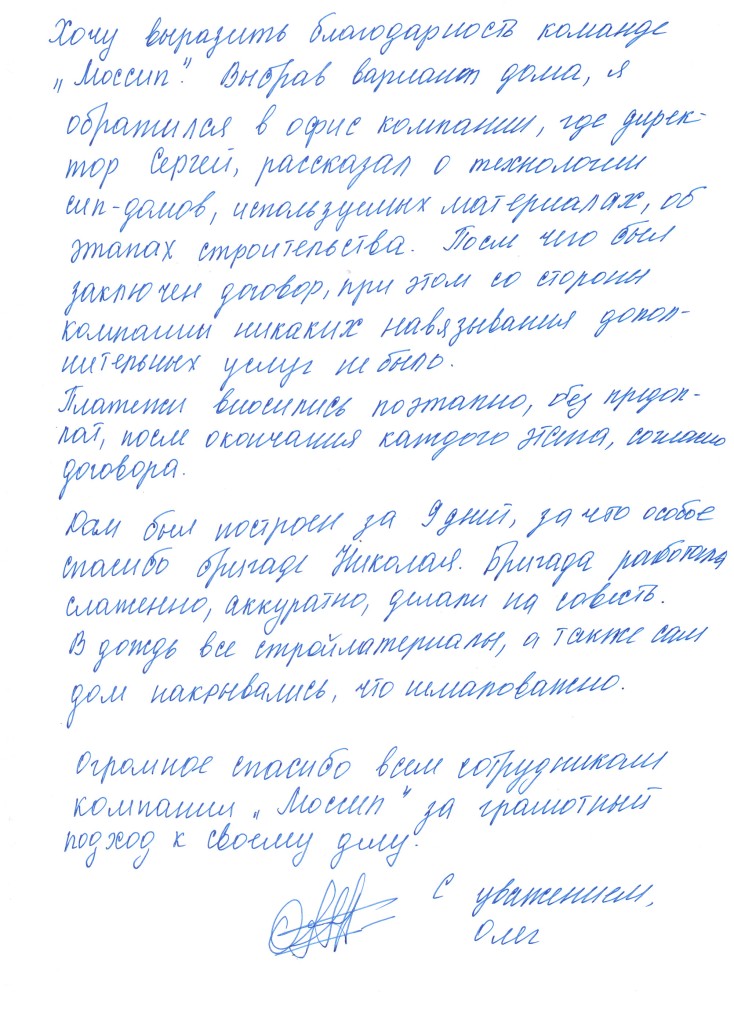 Хочу выразить благодарность команде
„Моссип". Выбрав вариант дома, я
обратился в офис компании, где дирек-
тор Сергей, рассказал о технологии
сип-домов, используемых материалах, об
этапах строительства. После чего был
заключен договор, при этом со стороны
компании никаких навязывания допол-
нительных услуг не было.
Платежи вносились поэтапно, без предоп-
лат, после окончания каждого этапа, согласно
договора.
Дом был построен за 9 дней, за что особое
спасибо бригаде Николая. Бригада работала
слаженно, аккуратно, делали на совесть.
В дождь все стройматериалы, а также сам
дом накрывались, что немаловажно.
Огромное спасибо всем сотрудникам
компании „Моссип" за грамотный
подход к своему делу.
С уважением,
Олег